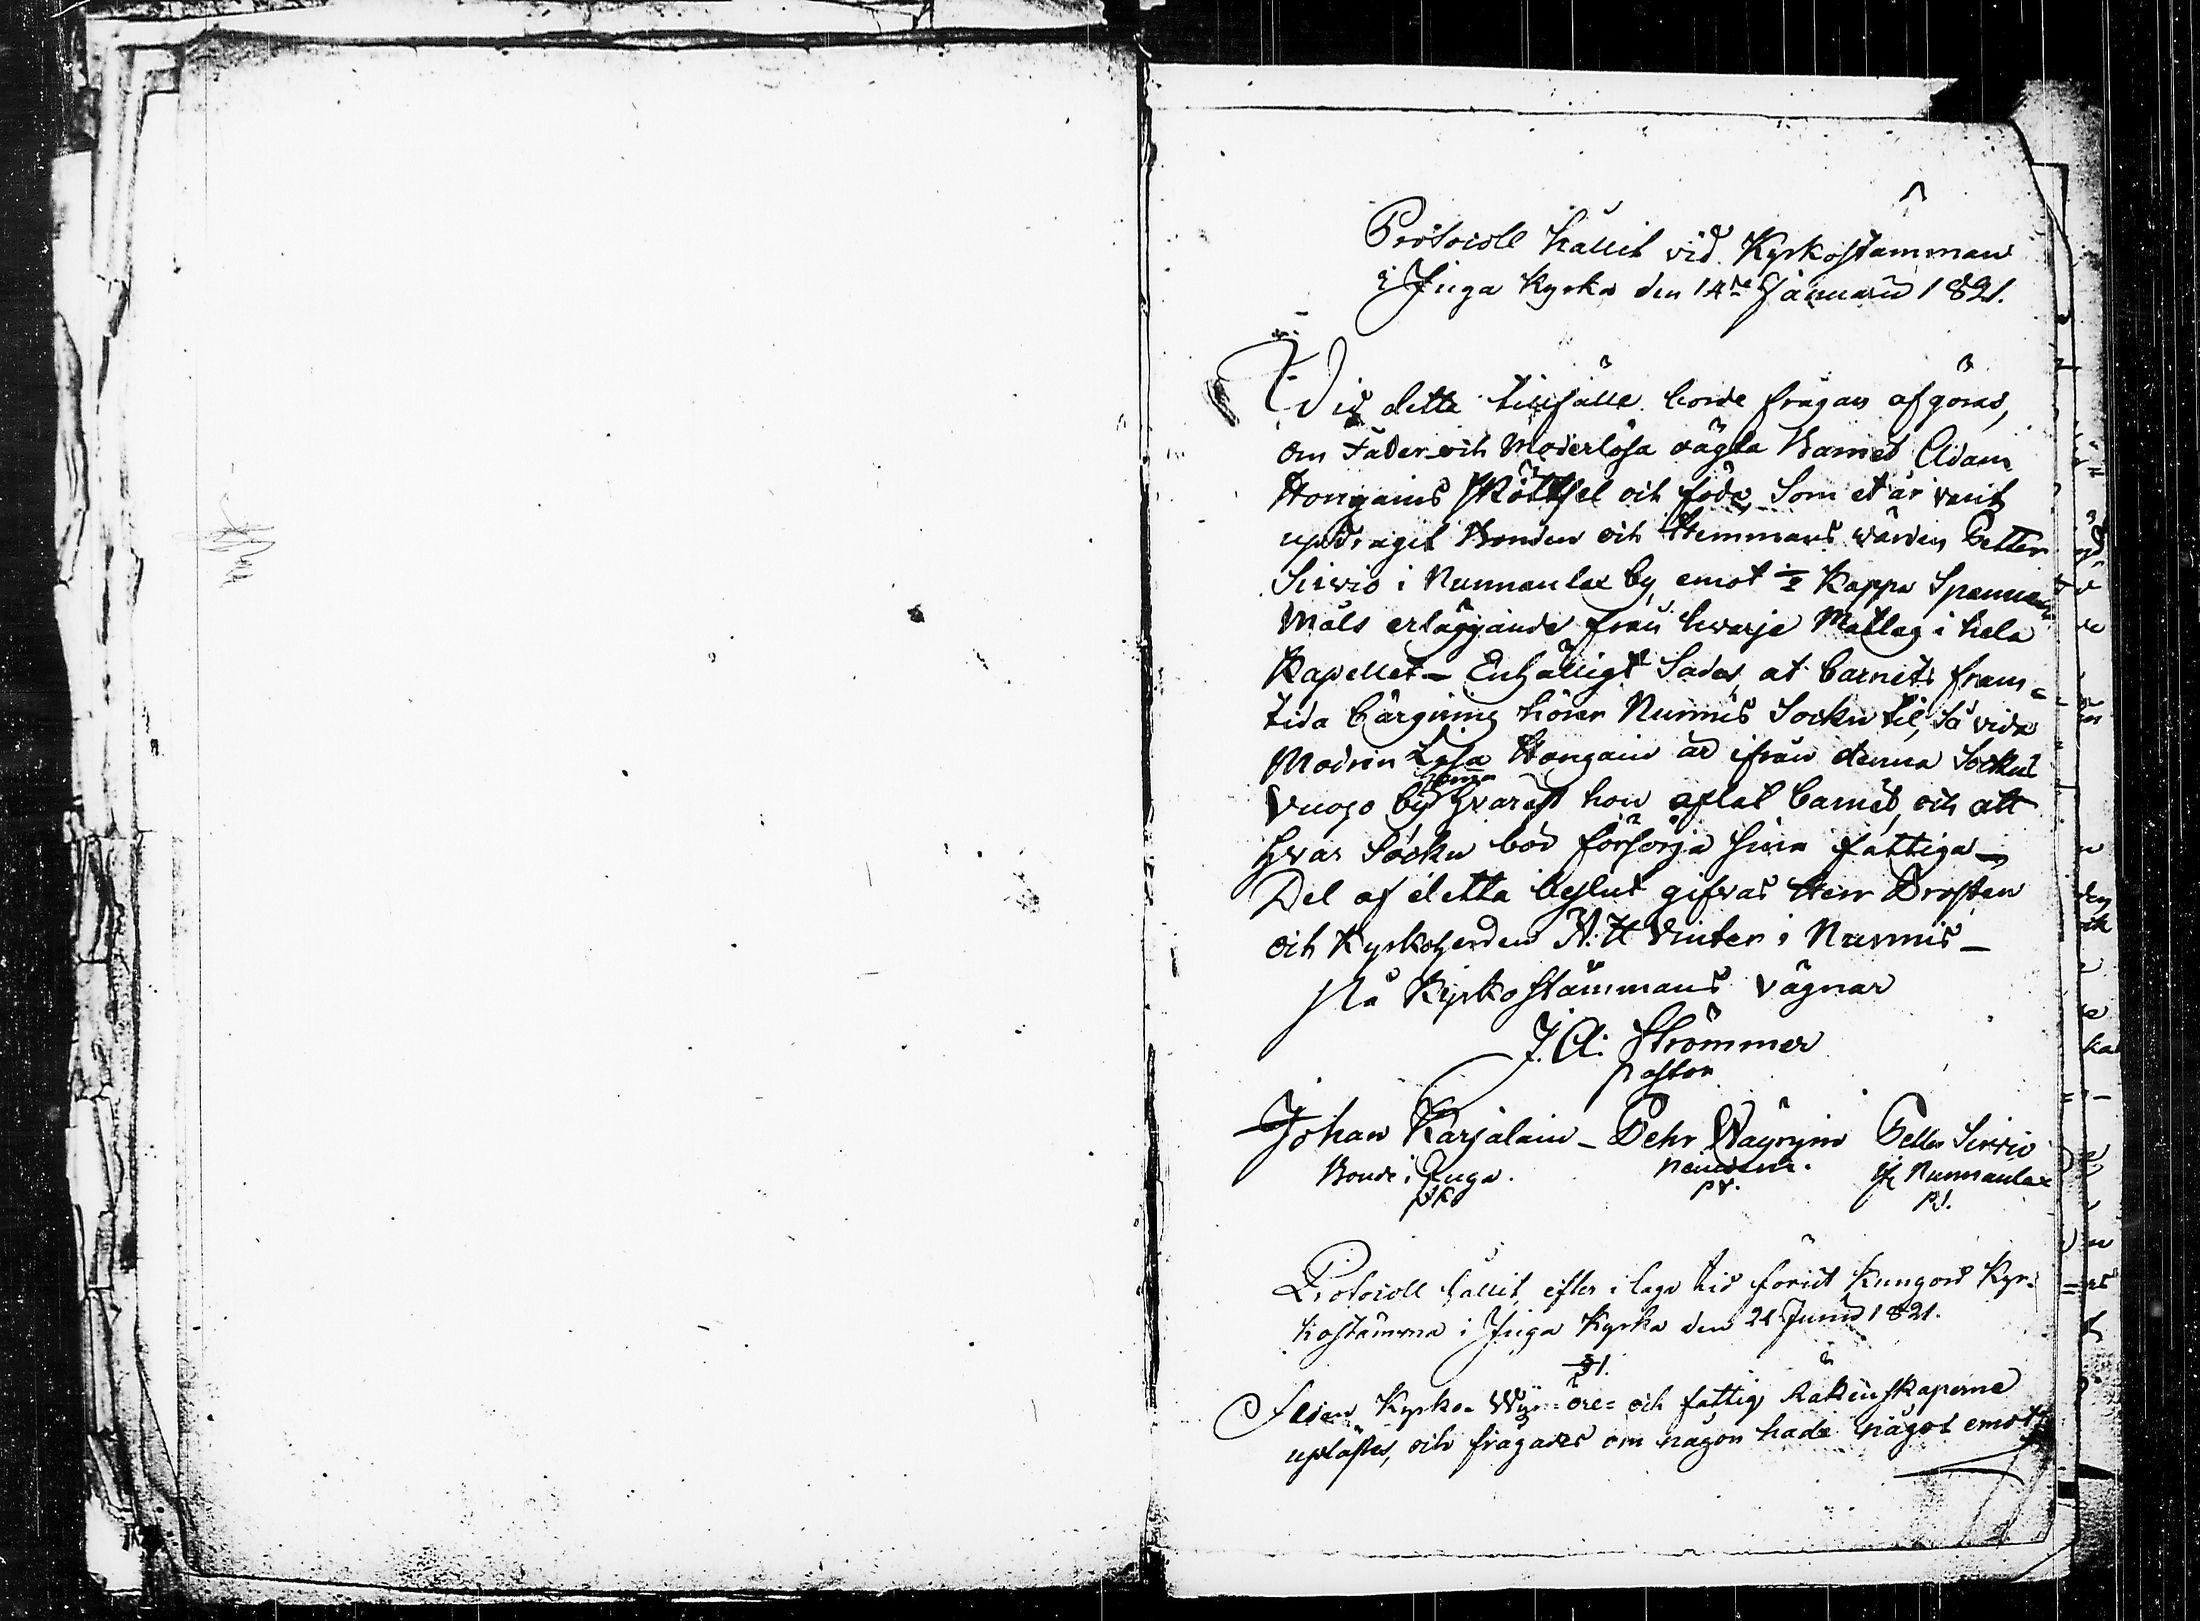 Protocoll hållit vid Kyrkostämman
i Juga Kyrka den 14de Januarii 1821.
Wid dette tillfälle borde frågan afgöras,
om Fader och Moderlösa oägta Barnet Adam
Hongains Skötsel och föda, Som et år varit
updraget Bonden och Hemmans wärden Petter
Sirviö i Nunnanlax by, emot ½ Kappa Spanne-
måls erläggande från hvarje Matlag i hela
Kapellet - Enhälligt Sades, at barnets fram-
tida bärgning hörer Nurmis Sockn til, Så vida
Modren Lisa Hongain är ifrån denna Sockns
Vuogo by hvarest hon aflat barnet, och att
hvar Sockn bör försörja sina fattiga -
Del af detta beslut gifvas Herr Prosten
och Kyrkoherden A: H Vinter i Nurmis -
På Kyrkostämmans vägnar
J. A: Strömmer
Pastor
Johan Karjalain - Pehr Wäyryin Petter Sirviö
Bonde i Juga. Nämdem. if Nunnanlax
Protocoll hållit, efter i laga tid förut kungord Kyr-
kostämma i Juga Kyrka den 24 Junii 1821.
§1.
Kyrko- Wyr-öre- och fattig Räkenskaperne
uplästes, och frågades om någon hade något emot